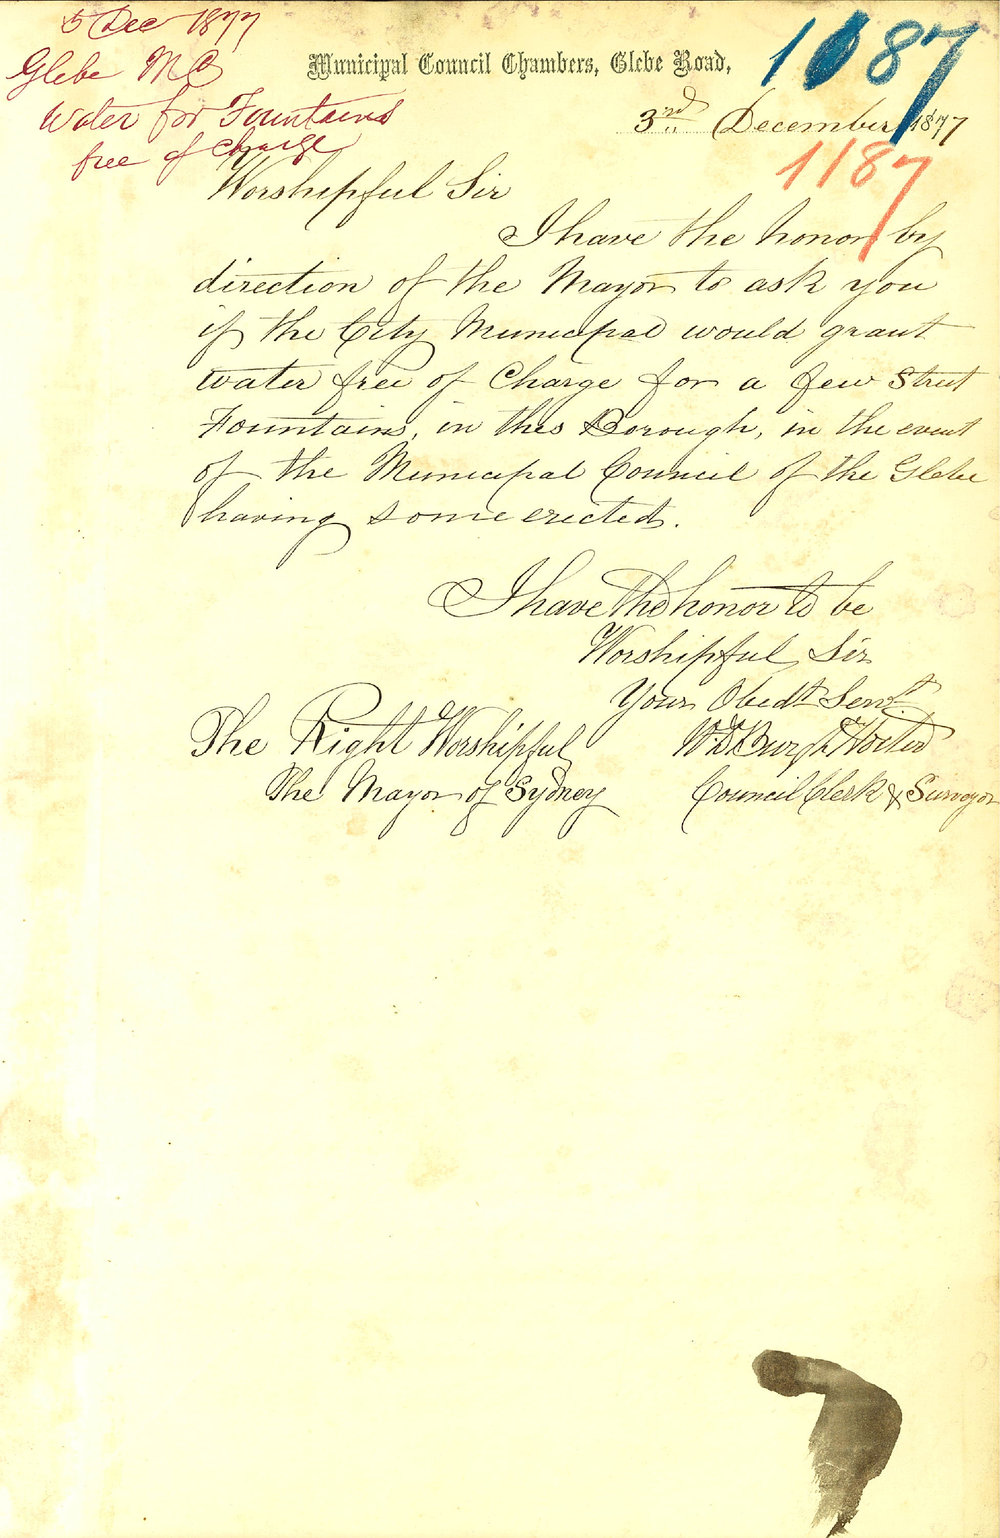 5 Dec 1877
Glebe M C
Water for Fountains
free of charge
Municipal Council Chambers, Glebe Road,
1087
3rd December 1877
1187
Worshipful Sir
I have the honor by
direction of the Mayor to ask you
if the City Municipal would grant
water free of Charge for a few Street
Fountains, in this Borough, in the event
of the Municipal Council of the Glebe
having some erected.
I have the honor to be
Worshipful Sir
Your Obedt Servt.
The Right Worshipful
The Mayor of Sydney
Council Clerk & Surveyor